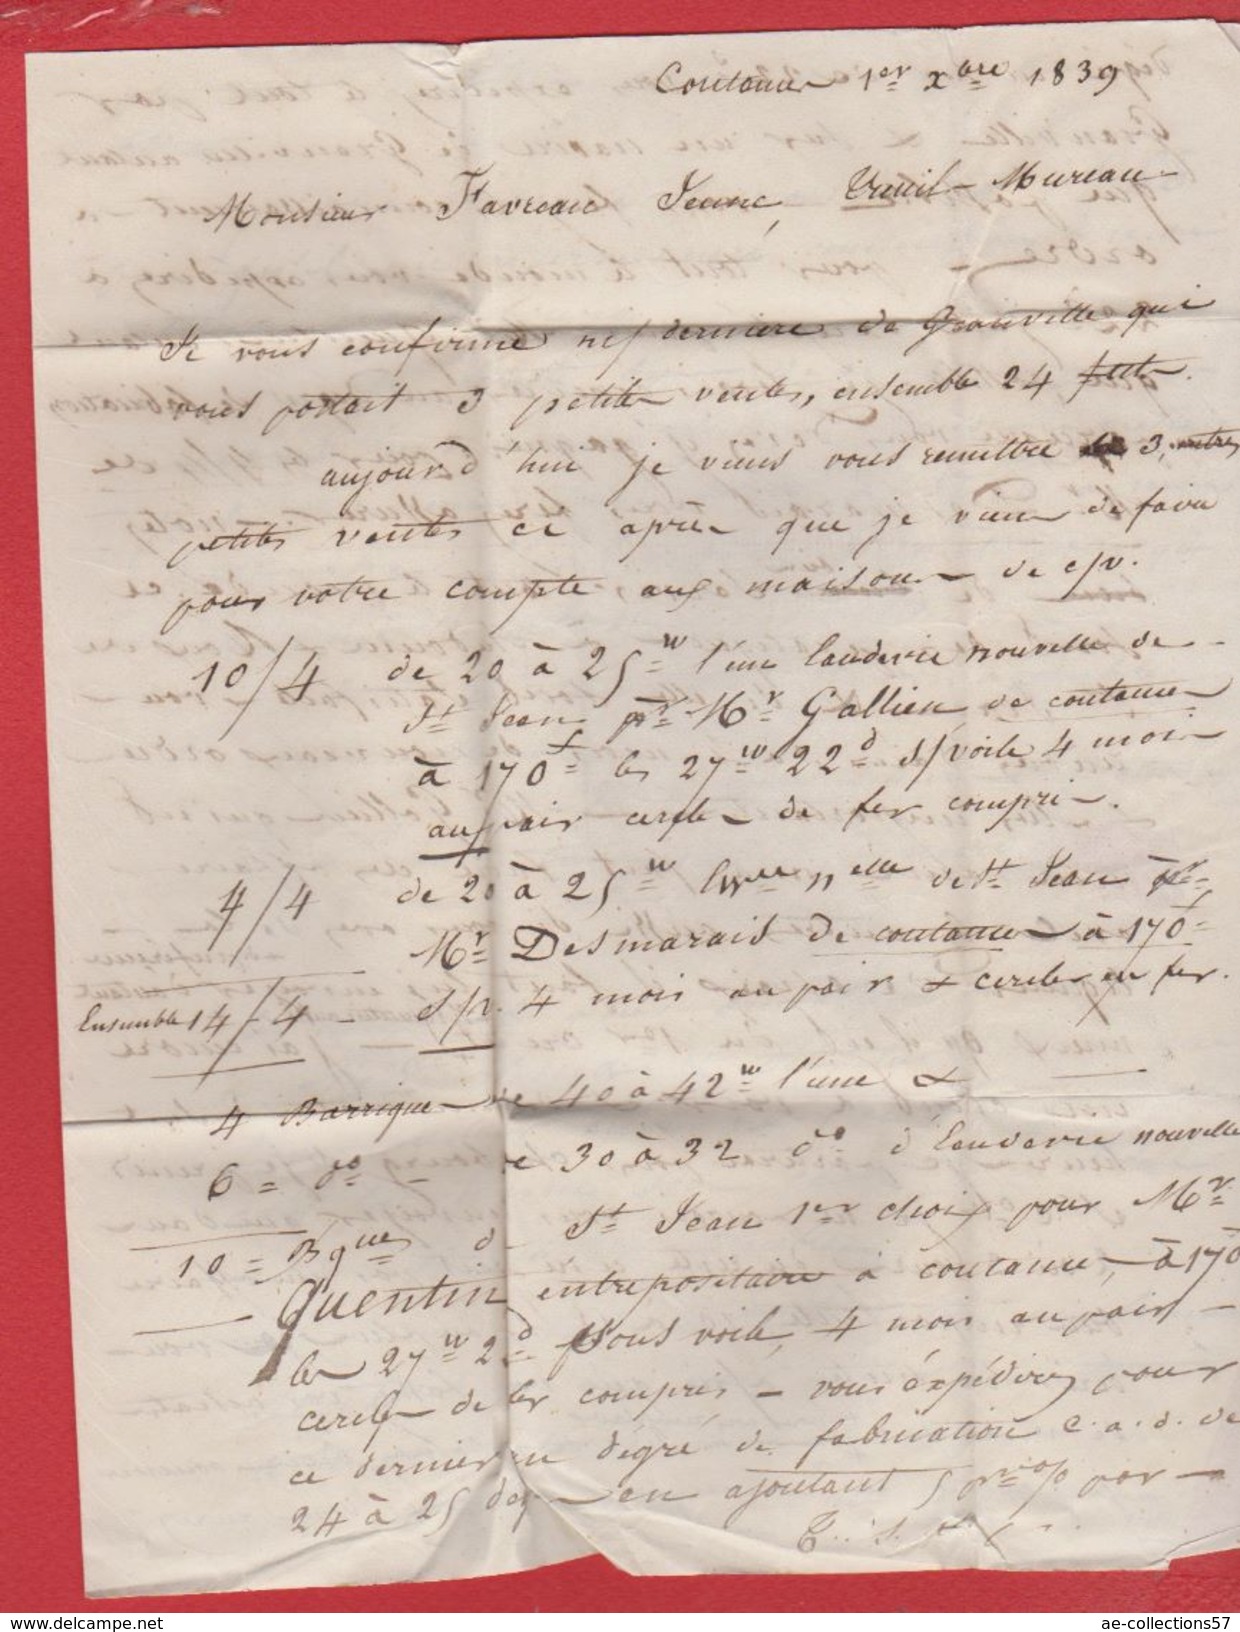 Coutances 1er xbre 1839
Monsieur Favreau Jeune, Mureau
Je vous confirme dernière de Granville qui
vous portait 3 petites ventes, ensemble 24 futs.
aujourd'hui je viens vous remettre 3 autres
petites ventes ci après que je viens de faire
pour votre compte aux maisons de c/v.
10/4 de 20 à 25 w l'un l'eauderie nouvelle de
St Jean pr Mr Gallien de coutances
à 170f les 27w 22d s/voile 4 mois
au pair cercles de fer compris.
4/4 de 20 à 25w nelle de St Jean à pr
Mr Desmarais de coutances à 170f
Ensemble 14/4 - s/v. 4 mois au pair & cercles en fer.
4 Barriques de 40 à 42w l'une &
6 = do - de 30 à 32 do d'eauderie nouvelle
10 = Bques d St Jean 1er choix pour Mr
Quentin entrepositaire à coutances, à 170
les 27w 2d sous voile, 4 mois au pair -
cercles de fer compris - vous expédirez pour
ce dernier un dégré de fabrication c.a.d. de
24 à 25 deg en ajoutant 5 pr % par -
ae-collections57